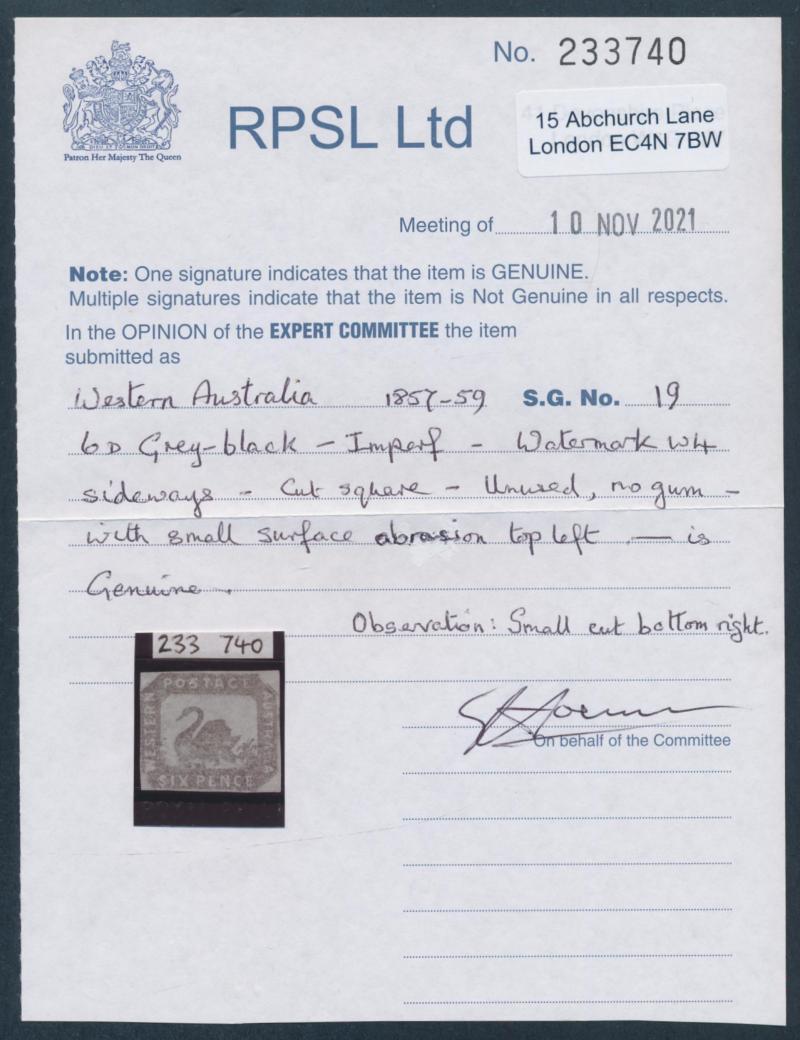 No. 233740
RPSL Ltd
15 Abchurch Lane
London EC4N 7BW
DIEU ET MON DROIT
Patron Her Majesty The Queen
Meeting of 10 NOV 2021
Note: One signature indicates that the item is GENUINE.
Multiple signatures indicate that the item is Not Genuine in all respects.
In the OPINION of the EXPERT COMMITTEE the item
submitted as
Western Australia 1857-59 S.G. No. 19
6D Grey-black - Imperf - Watermark W4
sideways - Cut square - Unused, no gum -
with small surface abrasion top left - is
Genuine.
Observation: Small cut bottom right.
233 740
POSTAGE
WESTERN
AUSTRALIA
SIX PENCE
On behalf of the Committee